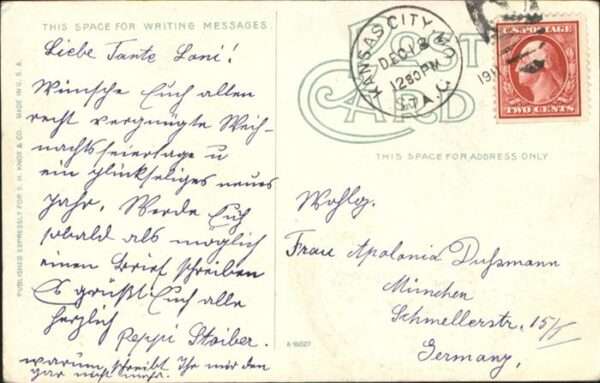 THIS SPACE FOR WRITING MESSAGES
Liebe Tante Loni!
Wünsche Euch allen
recht vergnügte Weih-
nachtsfeiertage u
ein glückseliges neues
Jahr. Werde Euch
sobald als möglich
einen Brief schreiben
Es grüßt Euch alle
herzlich
Peppi Stoiber.
warum schreibt Ihr mir den
gar nicht mehr.
PUBLISHED EXPRESSLY FOR S. H. KNOX & CO. MADE IN U. S. A.
POST
CARD
KANSAS CITY, MO.
DEC 18
1230 PM
STA. C
191
U.S. POSTAGE
TWO CENTS
THIS SPACE FOR ADDRESS ONLY
Wohlg.
Frau Apolonia Dußmann
München
Schmellerstr. 15/I
Germany.